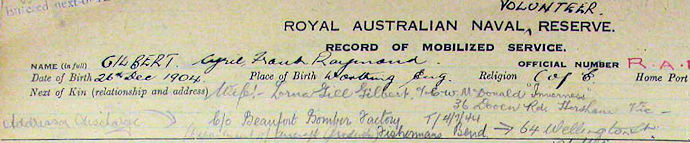 Entered next of
VOLUNTEER.
ROYAL AUSTRALIAN NAVAL RESERVE.
RECORD OF MOBILIZED SERVICE.
NAME (in full) GILBERT. Cyril Frank Raymond. OFFICIAL NUMBER R.A.
Date of Birth 26th Dec 1904. Place of Birth Worthing Eng. Religion C of E Home Port
Next of Kin (relationship and address) Wife:- Lorna Gill Gilbert, C/o W. McDonald "Inverness"
36 Rd. Horsham Vic
Address on Discharge C/o Beaufort Bomber Factory T/4/7/44
Department of Aircraft Fishermans Bend → 64 Wellington St.